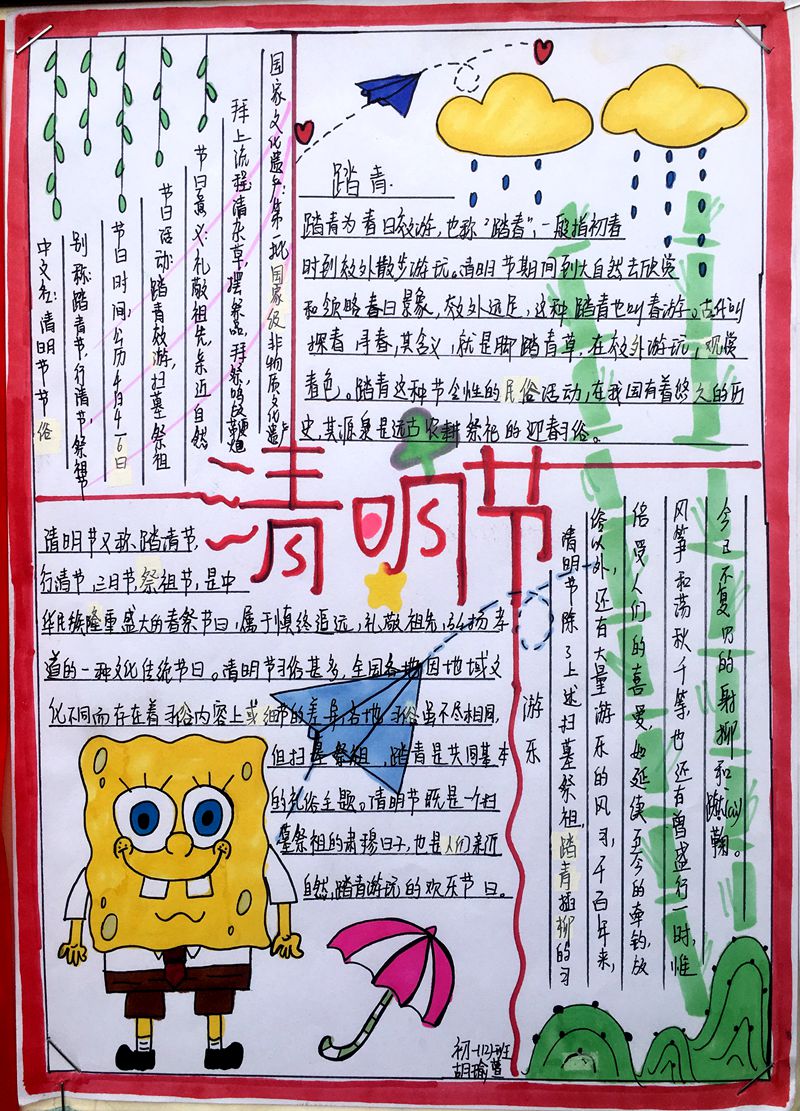 国家文化遗产：第一批国家级非物质文化遗产
拜上流程：清杂草，摆祭品，拜祭鸣放鞭炮
节日意义：礼敬祖先，亲近自然
节日活动：踏青郊游，扫墓祭祖
节日时间：公历4月4-6日
别称：踏青节，行清节，祭祖节
中文名：清明节节俗
踏青
踏青为春日郊游，也称“踏春”，一般指初春
时到郊外散步游玩。清明节期间到大自然去欣赏
和领略春日景象，郊外远足，这种踏青也叫春游。古代叫
探春、寻春，其含义，就是脚踏青草，在郊外游玩，观赏
春色。踏青这种节令性的民俗活动，在我国有着悠久的历
史，其源泉是远古农耕祭祀的迎春习俗。
清明节
清明节又称踏清节，
行清节，三月节，祭祖节，是中
华民族隆重盛大的春祭节日，属于慎终追远，礼敬祖先，弘扬孝
道的一种文化传统节日。清明节习俗甚多，全国各地因地域文
化不同而存在着习俗内容上或细节的差异，各地习俗虽不尽相同，
但扫墓祭祖、踏青是共同基本
的礼俗主题。清明节既是一个扫
墓祭祖的肃穆日子，也是人们亲近
自然，踏青游玩的欢乐节日。
游乐
清明节除了上述扫墓祭祖，踏青插柳的习
俗以外，还有大量游乐的风习，千百年来，
倍受人们的喜爱，如延续至今的牵钩，放
风筝和荡秋千等，也还有曾盛行一时，惟
今已不复见的射柳和蹴(cù)鞠。
初一(12)班
胡瑜萱